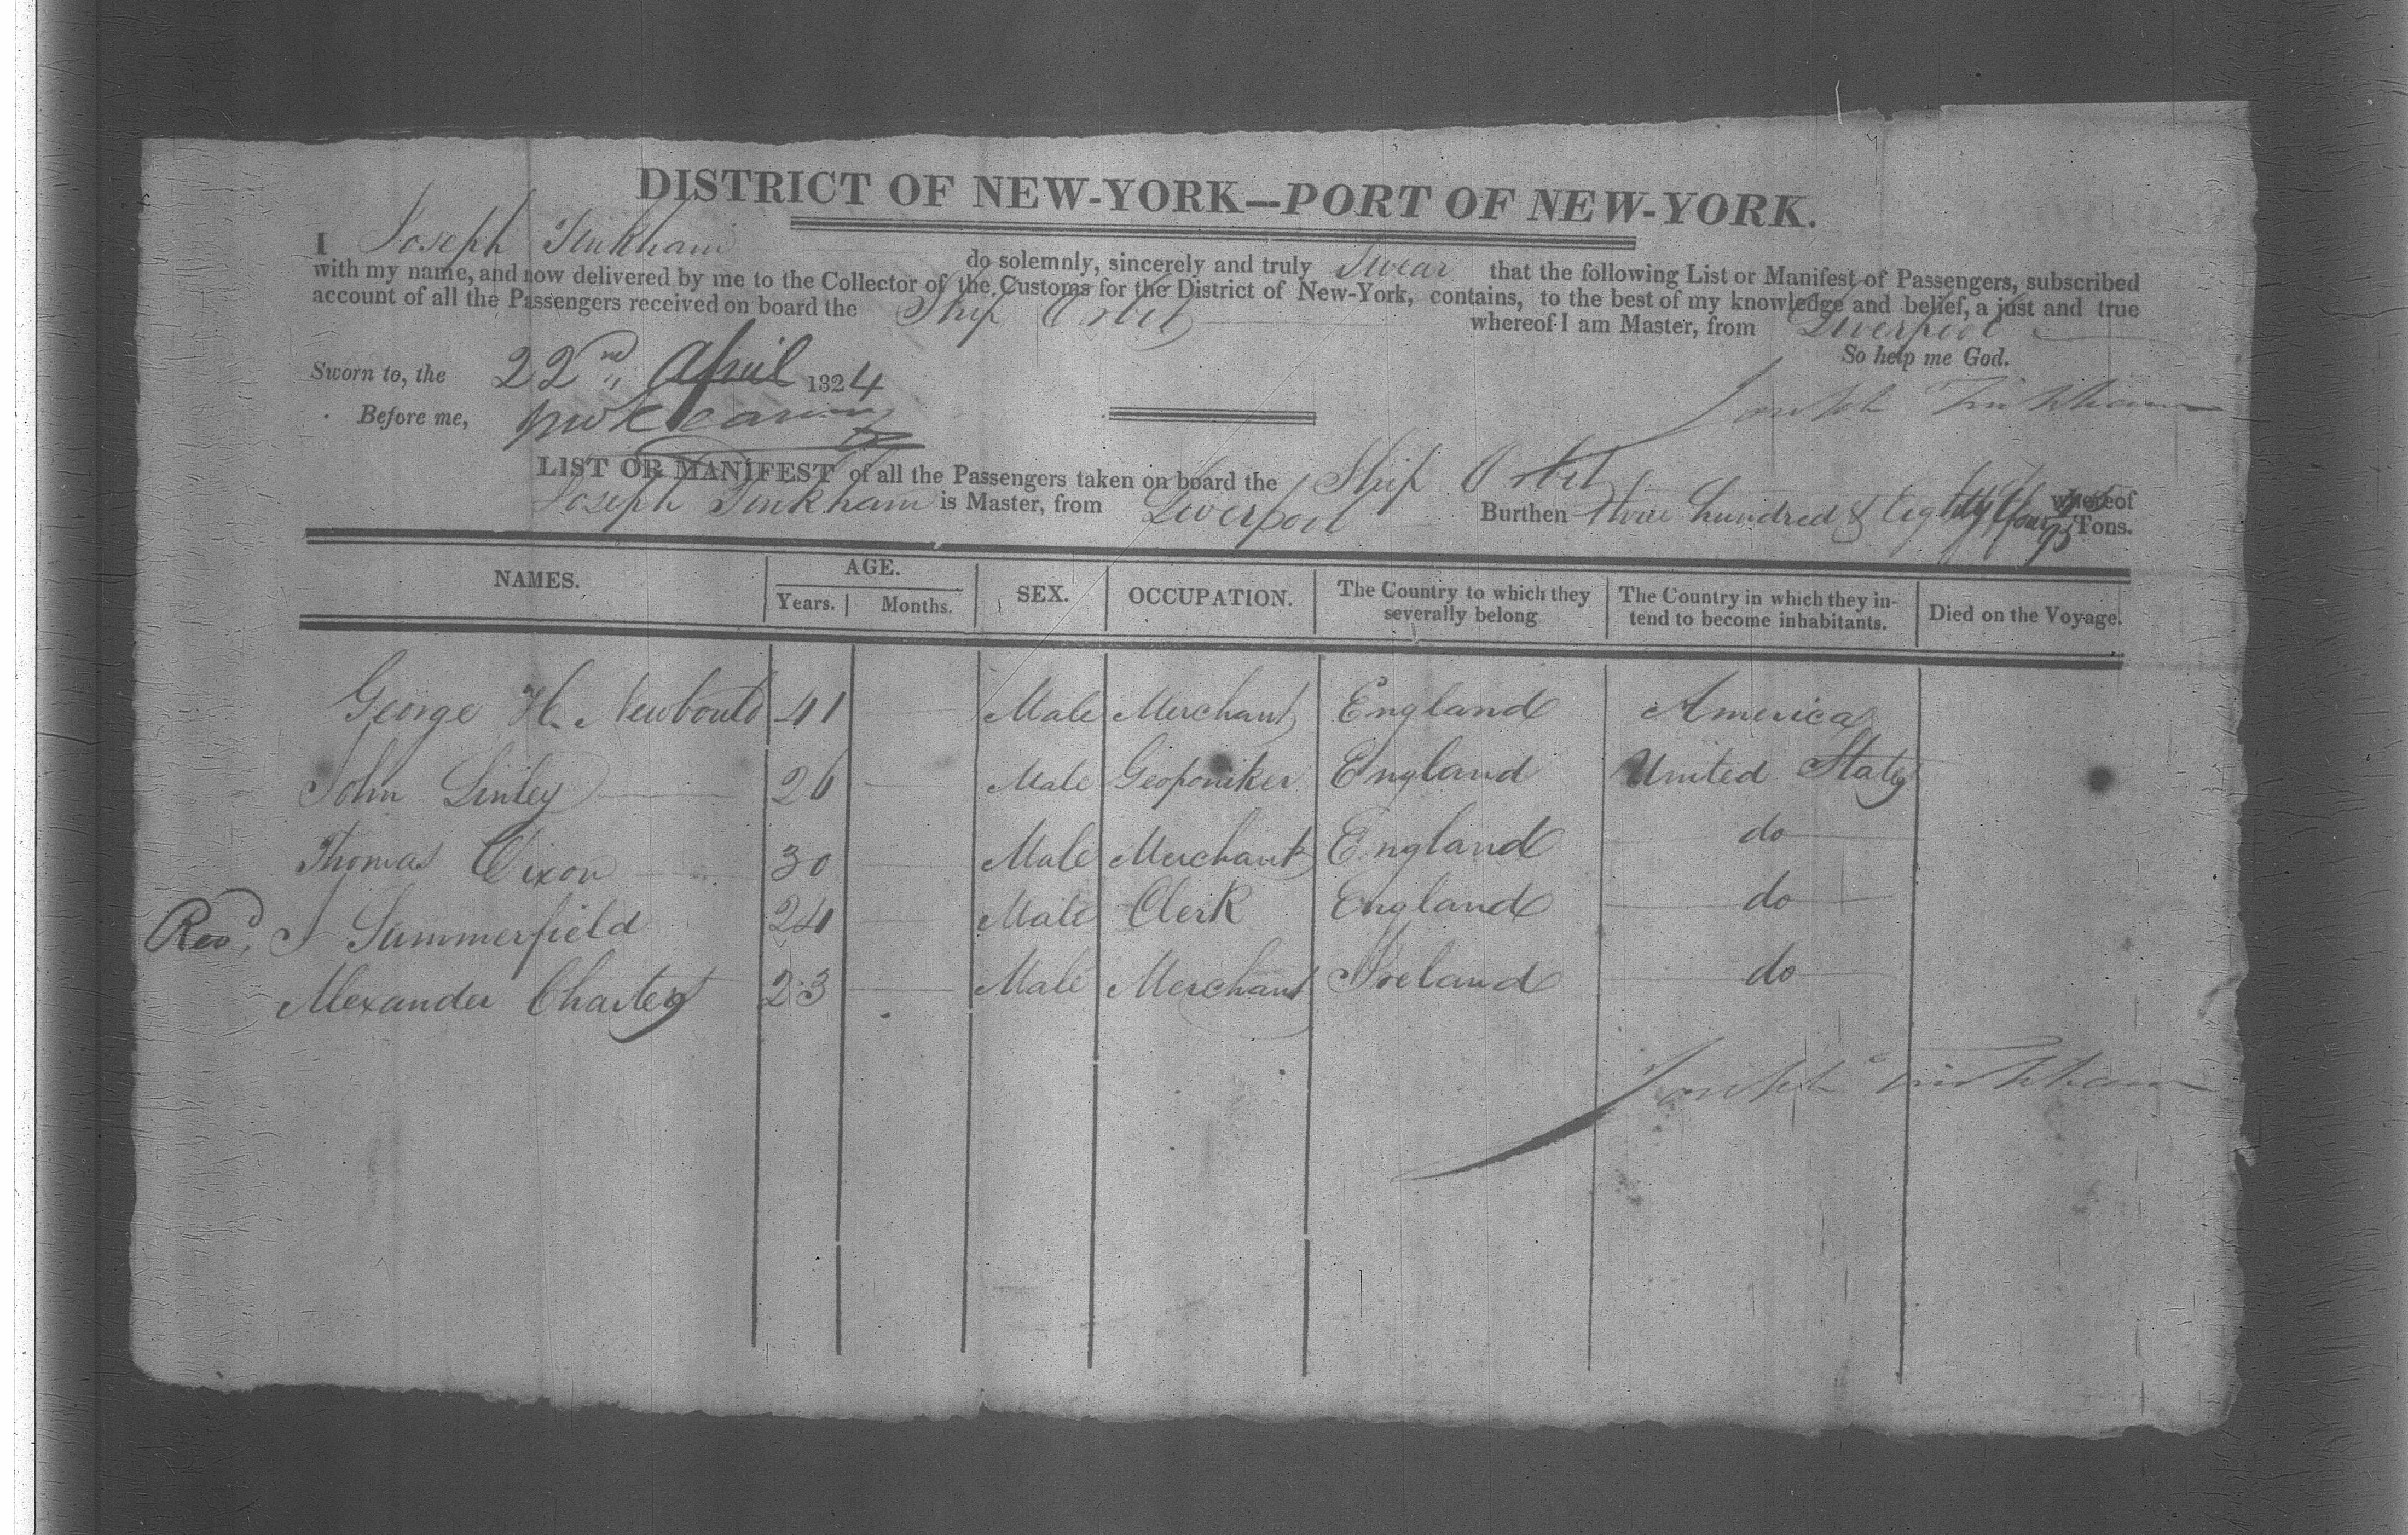 DISTRICT OF NEW-YORK—PORT OF NEW-YORK.
I Joseph Tinkham do solemnly, sincerely and truly Swear that the following List or Manifest of Passengers, subscribed
with my name, and now delivered by me to the Collector of the Customs for the District of New-York, contains, to the best of my knowledge and belief, a just and true
account of all the Passengers received on board the Ship Orbit whereof I am Master, from Liverpool
So help me God.
Sworn to, the 22nd April 1824
Joseph Tinkham
Before me,
LIST OR MANIFEST of all the Passengers taken on board the Ship Orbit whereof
Joseph Tinkham is Master, from Liverpool Burthen three hundred & Eighty four Tons.
NAMES. AGE. Years. Months. SEX. OCCUPATION. The Country to which they severally belong The Country in which they intend to become inhabitants. Died on the Voyage.
George H. Newbould 41 Male Merchant England America
John Linley 26 Male Geoponiker England United States
Thomas Dixon 30 Male Merchant England do
Revd, J Summerfield 24 Male Clerk England do
Alexander Charters 23 Male Merchant Ireland do
Joseph Tinkham